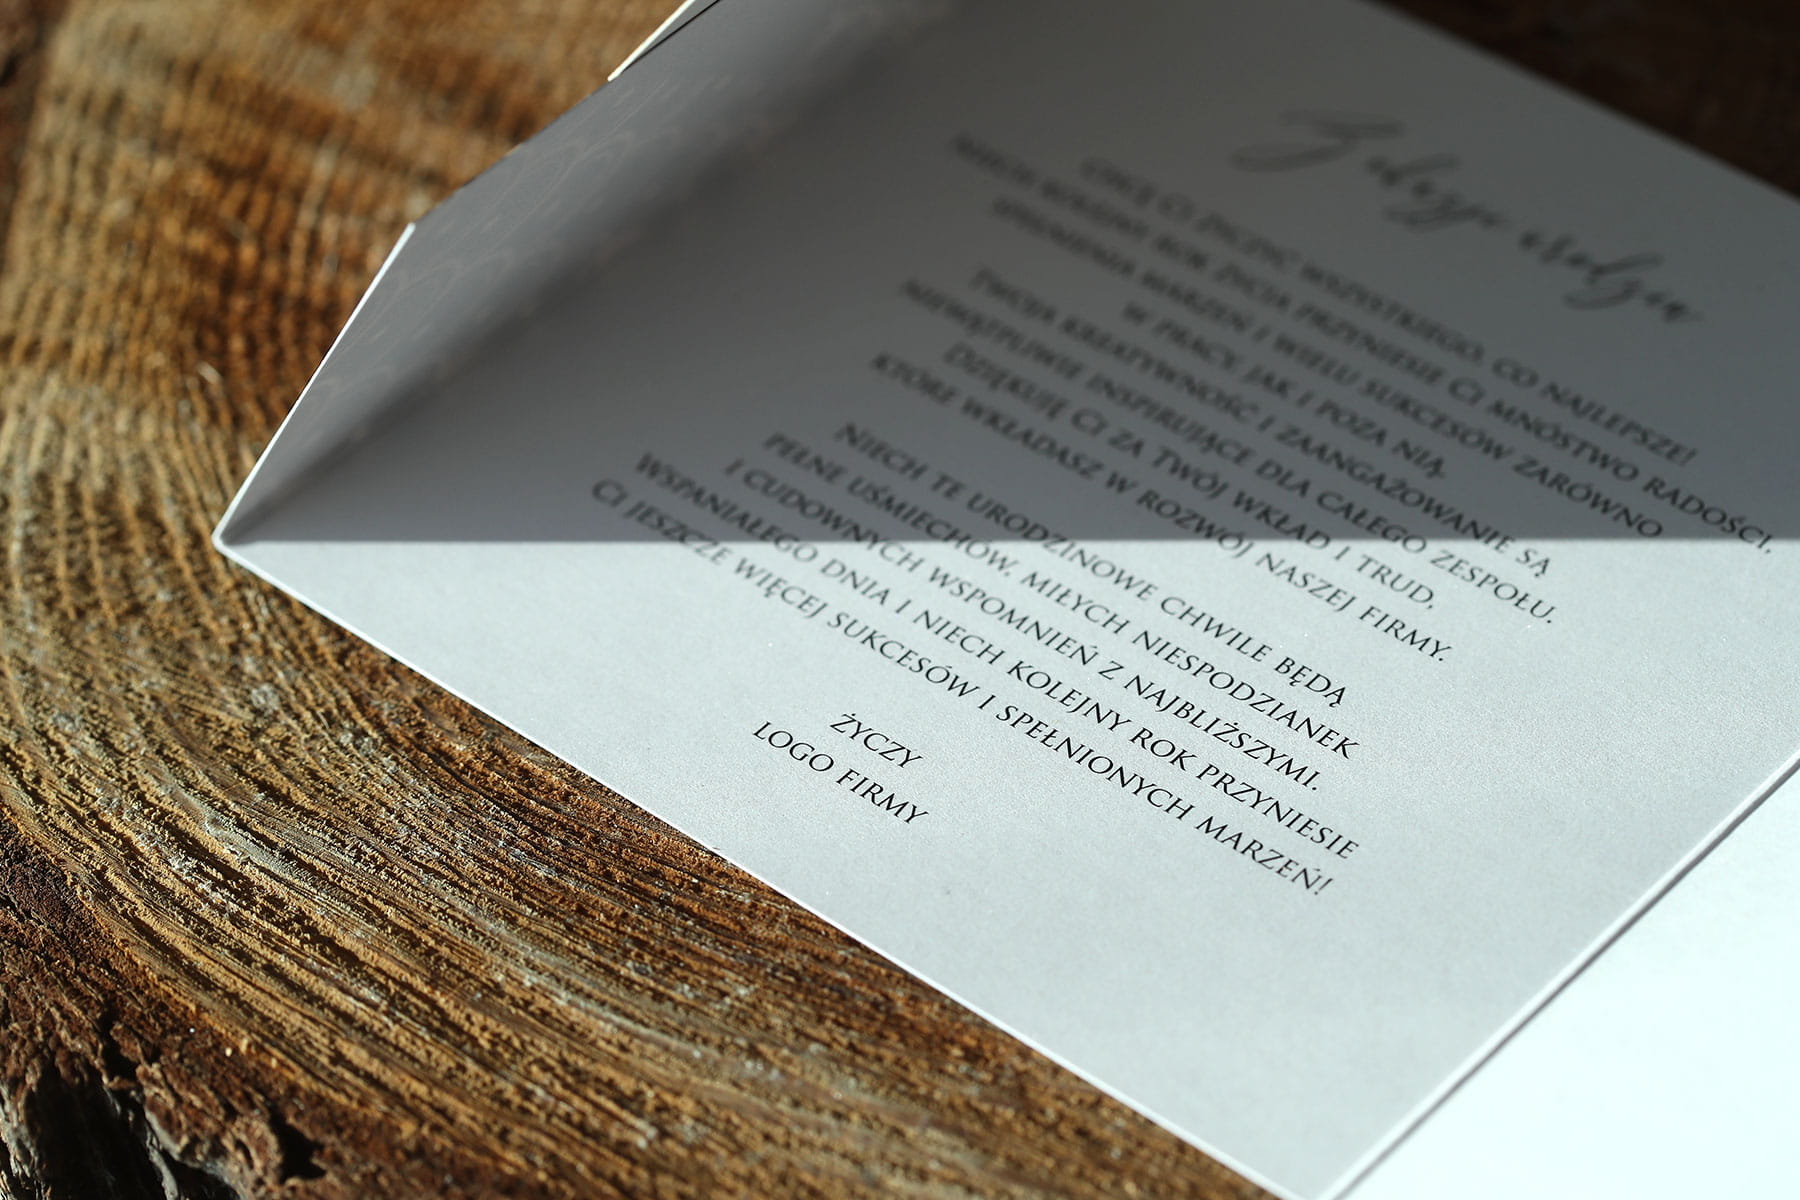 Z okazji urodzin
CHCĘ CI ŻYCZYĆ WSZYSTKIEGO, CO NAJLEPSZE!
NIECH KOLEJNY ROK ŻYCIA PRZYNIESIE CI MNÓSTWO RADOŚCI,
SPEŁNIENIA MARZEŃ I WIELU SUKCESÓW ZARÓWNO
W PRACY, JAK I POZA NIĄ.
TWOJA KREATYWNOŚĆ I ZAANGAŻOWANIE SĄ
NIEWĄTPLIWIE INSPIRUJĄCE DLA CAŁEGO ZESPOŁU.
DZIĘKUJĘ CI ZA TWÓJ WKŁAD I TRUD,
KTÓRE WKŁADASZ W ROZWÓJ NASZEJ FIRMY.
NIECH TE URODZINOWE CHWILE BĘDĄ
PEŁNE UŚMIECHÓW, MIŁYCH NIESPODZIANEK
I CUDOWNYCH WSPOMNIEŃ Z NAJBLIŻSZYMI.
WSPANIAŁEGO DNIA I NIECH KOLEJNY ROK PRZYNIESIE
CI JESZCZE WIĘCEJ SUKCESÓW I SPEŁNIONYCH MARZEŃ!
ŻYCZY
LOGO FIRMY